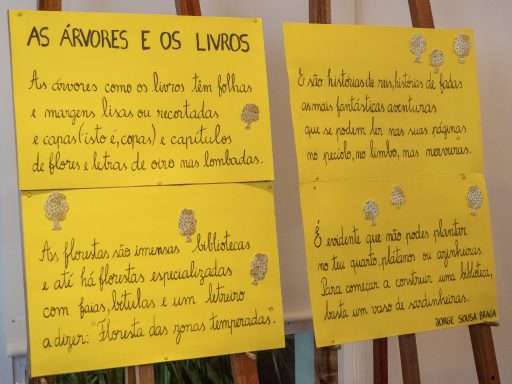 AS ÁRVORES E OS LIVROS
As árvores como os livros têm folhas
e margens lisas ou recortadas
e capas (isto é, copas) e capítulos
de flores e letras de oiro nas lombadas.
E são histórias de reis, histórias de fadas
as mais fantásticas aventuras
que se podem ler nas suas páginas
no pecíolo, no limbo, nas nervuras.
As florestas são imensas bibliotecas
e até há florestas especializadas
com faias, bétulas e um letreiro
a dizer: "Floresta das zonas temperadas".
É evidente que não podes plantar
no teu quarto, plátanos ou azinheiras.
Para começar a construir uma biblioteca,
basta um vaso de sardinheiras.
JORGE SOUSA BRAGA